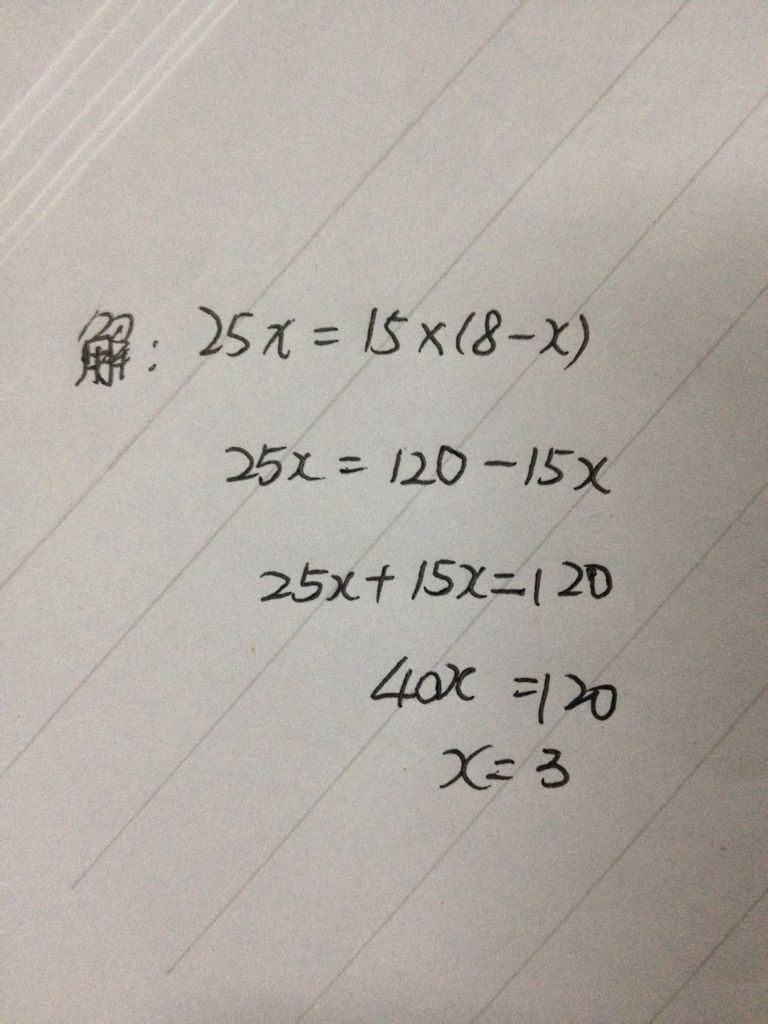 解: 25x = 15×(8-x)
25x = 120 -15x
25x+15x=120
40x =120
x=3